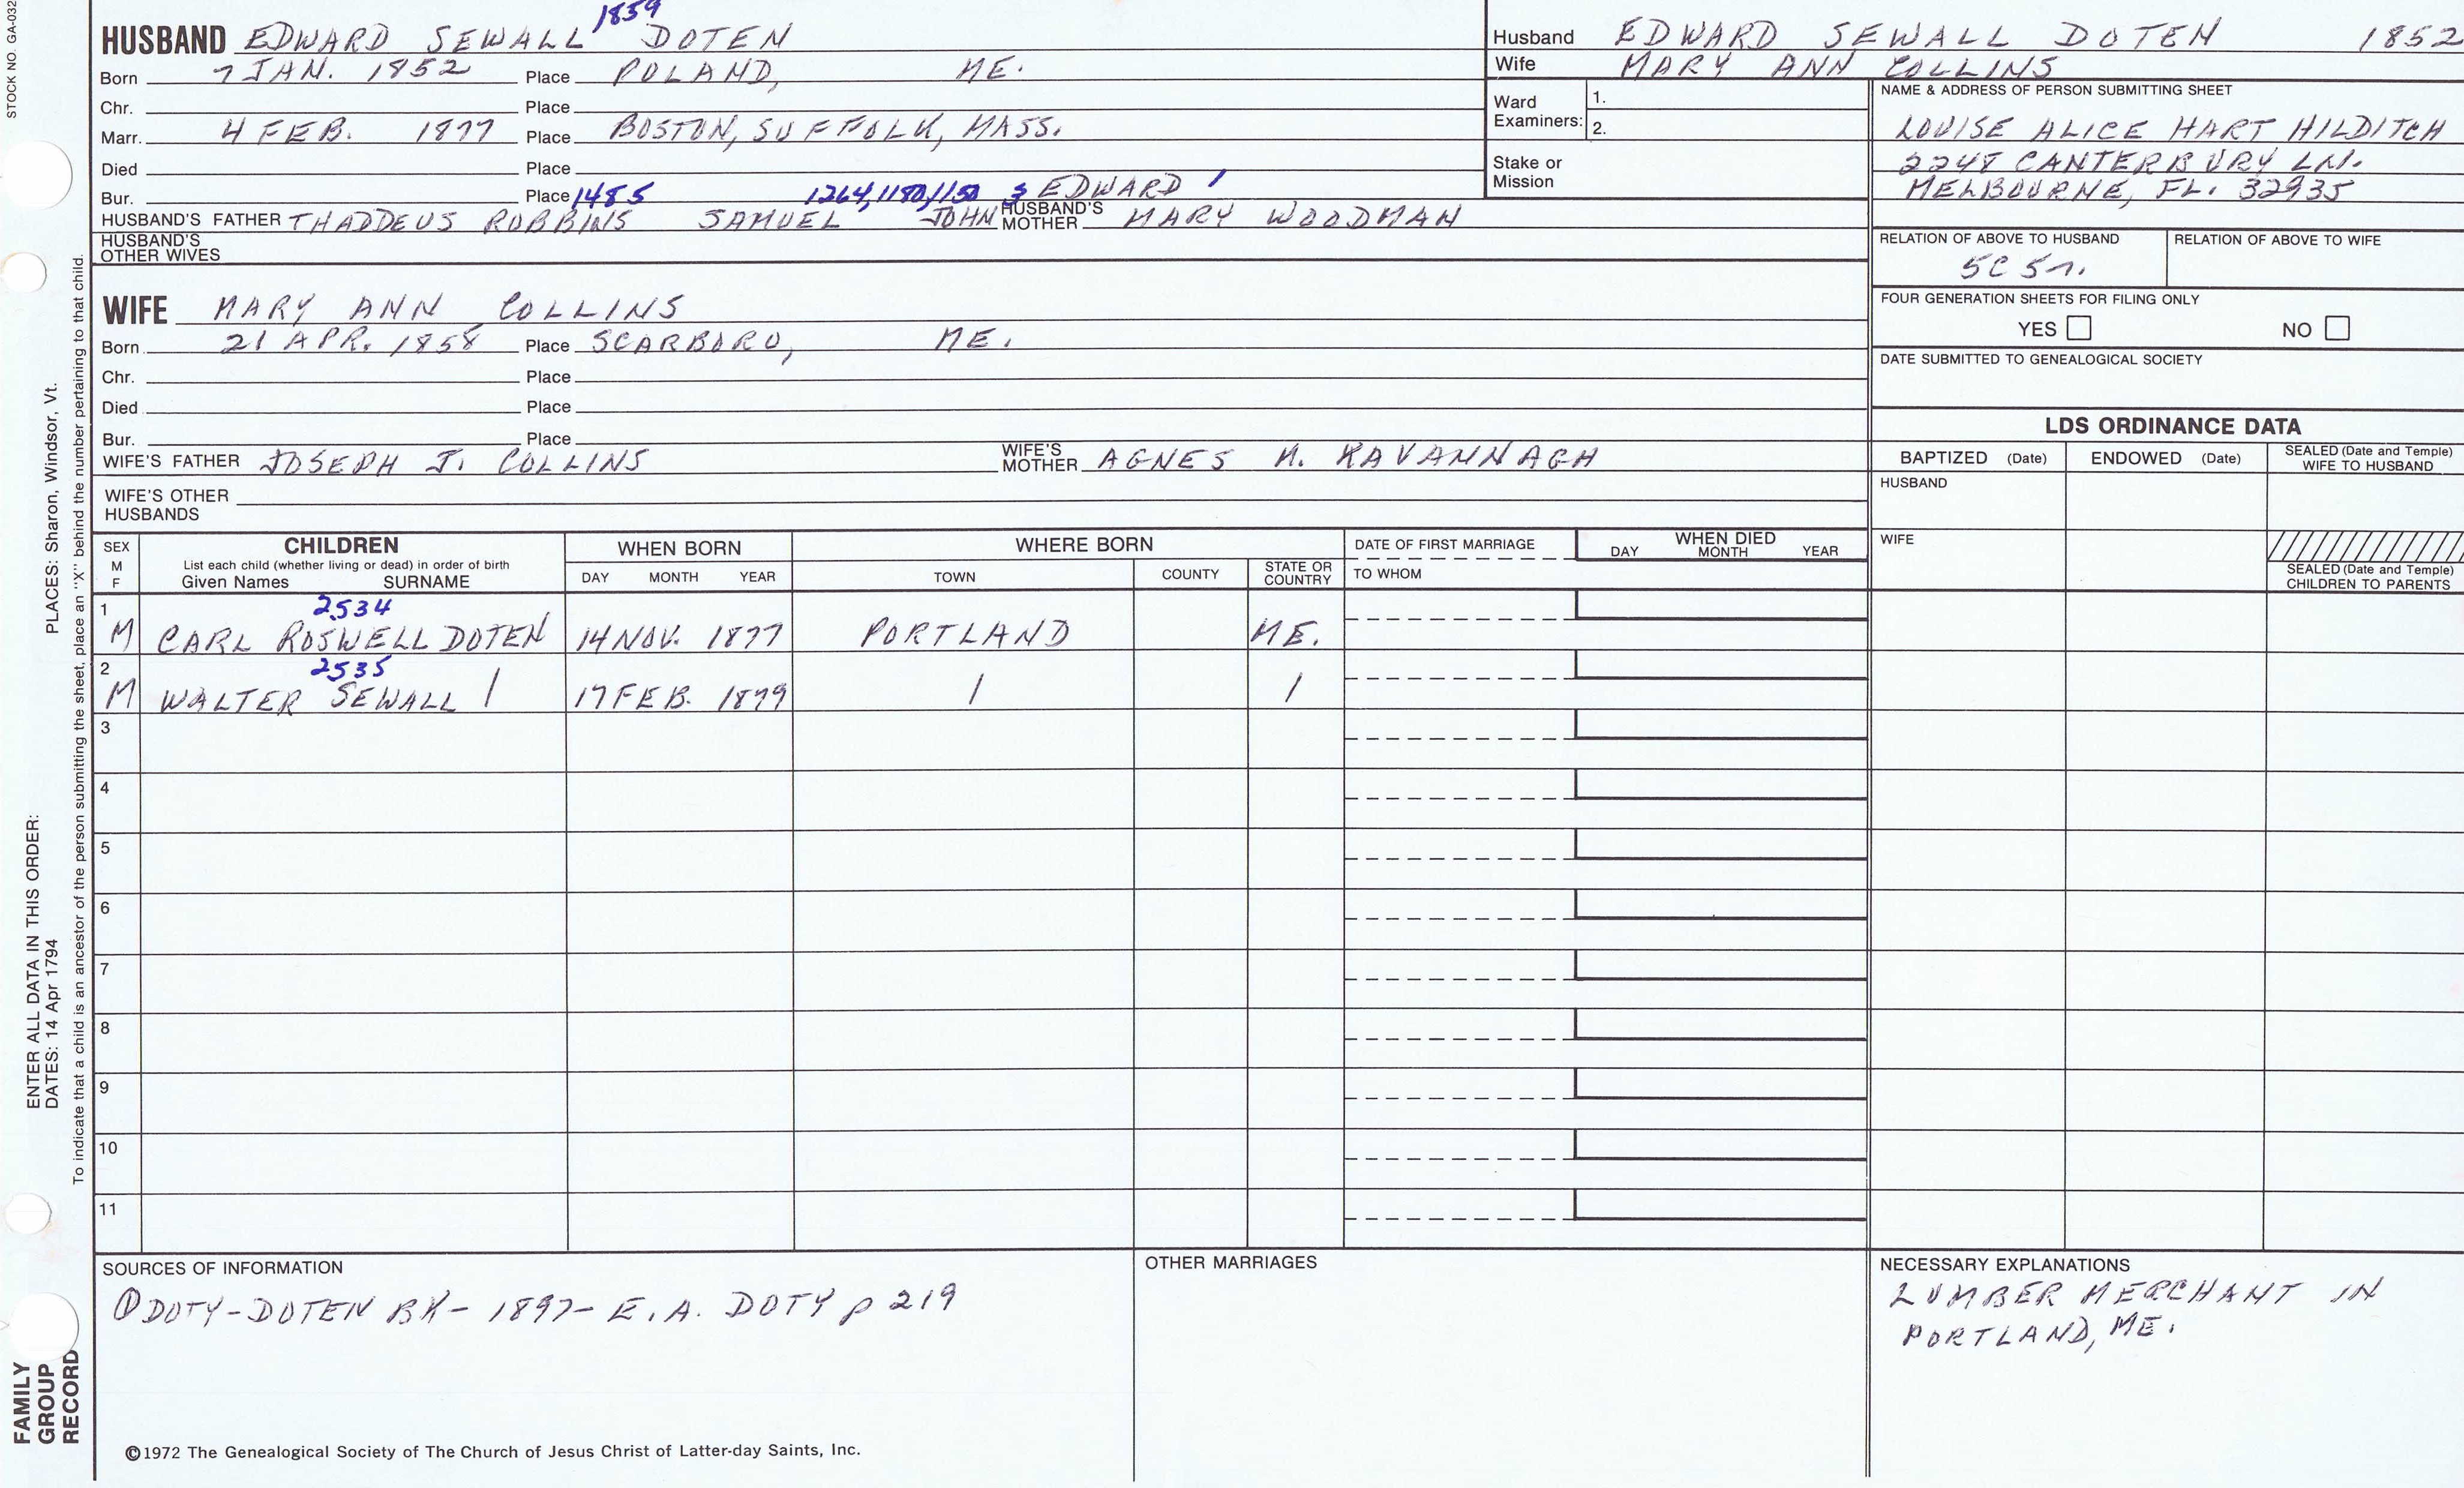 STOCK NO. GA-032
1859
HUSBAND EDWARD SEWALL DOTEN
Born 7 JAN. 1852 Place POLAND, ME.
Chr. Place
Marr. 4 FEB. 1877 Place BOSTON, SUFFOLK, MASS.
Died Place
Bur. Place 1485 1264, 1180, 1150 3 EDWARD 1
HUSBAND'S FATHER THADDEUS ROBBINS SAMUEL JOHN HUSBAND'S MOTHER MARY WOODMAN
HUSBAND'S OTHER WIVES
WIFE MARY ANN COLLINS
Born 21 APR. 1858 Place SCARBORO, ME.
Chr. Place
Died Place
Bur. Place
WIFE'S FATHER JOSEPH J. COLLINS WIFE'S MOTHER AGNES M. KAVANNAGH
WIFE'S OTHER HUSBANDS
Husband EDWARD SEWALL DOTEN 1852
Wife MARY ANN COLLINS
Ward Examiners: 1.
2.
Stake or Mission
NAME & ADDRESS OF PERSON SUBMITTING SHEET
LOUISE ALICE HART HILDITCH
2248 CANTERBURY LN.
MELBOURNE, FL. 32935
RELATION OF ABOVE TO HUSBAND RELATION OF ABOVE TO WIFE
5C 5r.
FOUR GENERATION SHEETS FOR FILING ONLY
YES NO
DATE SUBMITTED TO GENEALOGICAL SOCIETY
LDS ORDINANCE DATA
BAPTIZED (Date) ENDOWED (Date) SEALED (Date and Temple) WIFE TO HUSBAND
HUSBAND
WIFE
SEALED (Date and Temple) CHILDREN TO PARENTS
SEX M F CHILDREN WHEN BORN WHERE BORN DATE OF FIRST MARRIAGE WHEN DIED
List each child (whether living or dead) in order of birth
Given Names SURNAME DAY MONTH YEAR TOWN COUNTY STATE OR COUNTRY TO WHOM DAY MONTH YEAR
1 2534
M CARL ROSWELL DOTEN 14 NOV. 1877 PORTLAND ME.
2 2535
M WALTER SEWALL / 17 FEB. 1879 / /
3
4
5
6
7
8
9
10
11
SOURCES OF INFORMATION
① DOTY-DOTEN BK- 1897- E. A. DOTY p 219
OTHER MARRIAGES
NECESSARY EXPLANATIONS
LUMBER MERCHANT IN
PORTLAND, ME.
©1972 The Genealogical Society of The Church of Jesus Christ of Latter-day Saints, Inc.
FAMILY GROUP RECORD
ENTER ALL DATA IN THIS ORDER:
DATES: 14 Apr 1794 PLACES: Sharon, Windsor, Vt.
To indicate that a child is an ancestor of the person submitting the sheet, place an "X" behind the number pertaining to that child.